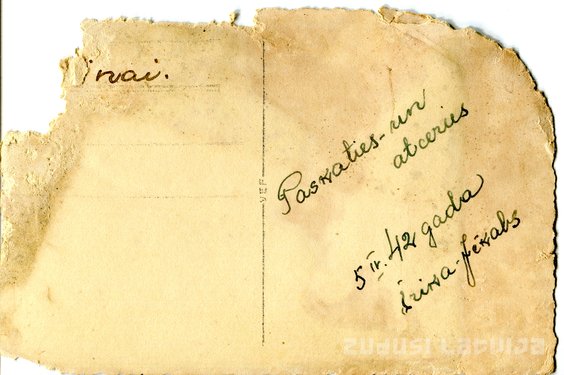 inai.
Paskaties-un
atceries
5 IV. 42 gada
Ērika-Jēkabs
VEF
zudusī latvija